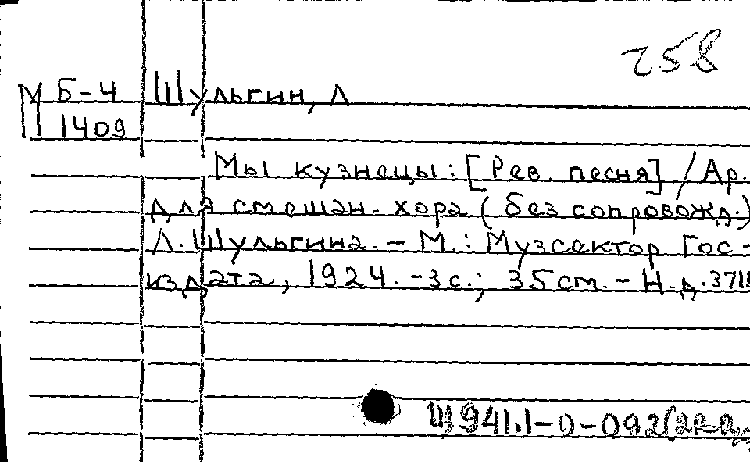 258
М Б-4 Шульгин, Л
1409
Мы кузнецы: [Рев. песня] / Ар.
для смешан. хора (без сопровожд.)
Л. Шульгина. - М.: Музсектор Гос-
издата, 1924. - 3 с.; 35 см. - Н.д. 3711
Щ941.1-0-092